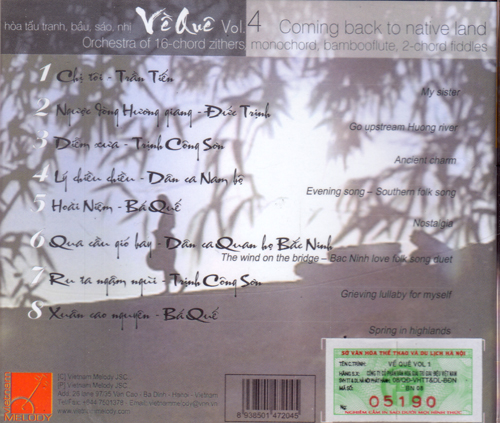 hòa tấu tranh, bầu, sáo, nhị Về Quê Vol. 4 Coming back to native land
Orchestra of 16-chord zithers, monochord, bambooflute, 2-chord fiddles
1 Chị tôi - Trần Tiến
My sister
2 Ngược dòng Hương giang - Đức Trịnh
Go upstream Huong river
3 Diễm xưa - Trịnh Công Sơn
Ancient charm
4 Lý chiều chiều - Dân ca Nam bộ
Evening song – Southern folk song
5 Hoài Niệm - Bá Quế
Nostalgia
6 Qua cầu gió bay - Dân ca Quan họ Bắc Ninh
The wind on the bridge – Bac Ninh love folk song duet
7 Ru ta ngậm ngùi - Trịnh Công Sơn
Grieving lullaby for myself
8 Xuân cao nguyên - Bá Quế
Spring in highlands
(C) Vietnam Melody JSC.
(P) Vietnam Melody JSC.
MELODY
8 936501 472045
SỞ VĂN HÓA THỂ THAO VÀ DU LỊCH HÀ NỘI
VỀ QUÊ VOL 1
MÃ SỐ: BN 08
05190